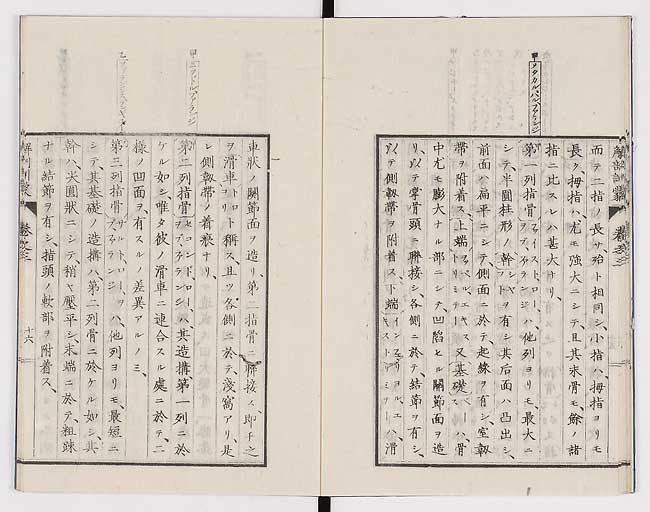 甲 メタカルパルファランジ
解剖訓蒙 卷之三
而テ二指ノ長サ殆ト相同シ、小指ハ拇指ヨリモ
長ク、拇指ハ尤モ強大ニシテ、且其末骨モ、餘ノ諸
指ニ比スレハ甚大ナリ、
第一列指骨 ハ他列ヨリモ最大ニ
シテ、半圓柱形ノ幹ヲ有シ、其后面ハ凸出シ、
前面ハ扁平ニシテ側面ニ於テ起緣ヲ有シ室韌
帶ヲ附着ス、上端 又基礎 ハ骨
中尤モ膨大ナル部ニシテ、凹陷セル關節面ヲ造
リ、以テ掌骨頭ニ聯接シ、各側ニ於テ、結節ヲ有シ、
以テ側韌帶ヲ附着ス、下端 ハ滑
車狀ノ關節面ヲ造リ第二指骨 聯接ス、即チ之
ヲ滑車 ト稱ス且ツ各側ニ於テ淺窩アリ是
レ側韌帶ノ着痕ナリ、
第二列指骨 ハ其造搆第一列ニ於
ケル如シ唯タ彼ノ滑車ニ連合スル處ニ於テ、二
樣ノ凹面ヲ有スルノ差異アルノミ、
第三列指骨 ハ他列ヨリモ最短ニ
シテ、其基礎ノ造搆ハ第二列骨ニ於ケル如シ、其
幹ハ尖圓狀ニシテ稍ヤ壓平シ、末端ニ於テ、粗踈
ナル結節ヲ有シ、指頭ノ軟部ヲ附着ス、
解剖訓蒙 卷之三 十六